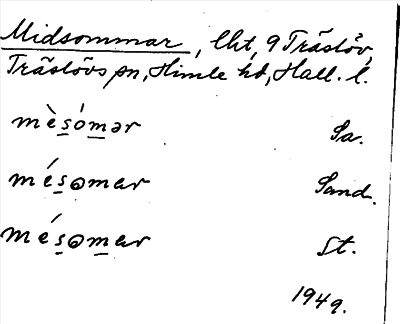 Midsommar, lht, 9 Träslöv,
Träslövs sn, Himle hd, Hall. l.
mèsómər Sa.
mésɷmar Sand.
mésɷmar St.
1949.